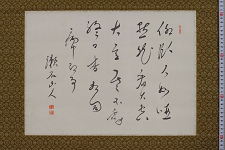 仰臥人如唖
黙然見大空
大空雲不動
終日杳相同
漱石山人